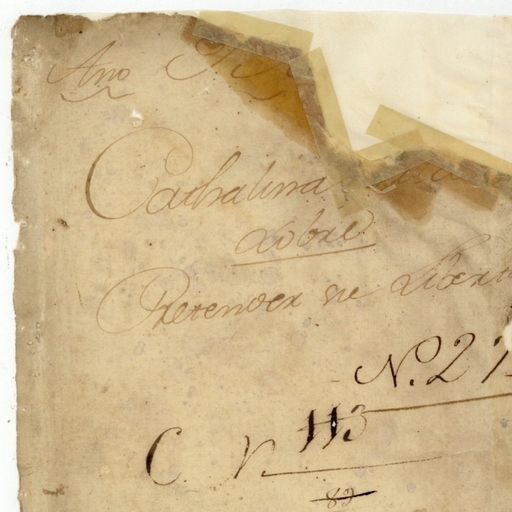 Año
Cathalina
sobre
Pretender su Libert
No. 21
C. V. 113
82